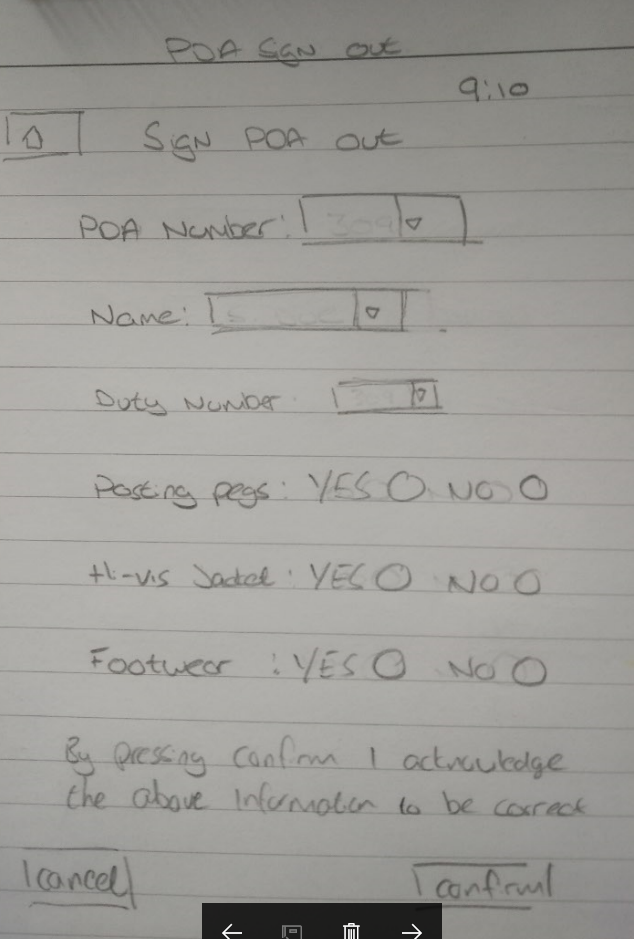 POA SIGN OUT
9:10
SIGN POA OUT
POA Number: 309
Name:
Duty Number
Posting pegs: YES NO
Hi-vis Jacket: YES NO
Footwear : YES NO
By pressing confirm I acknowledge
the above information to be correct
cancel confirm